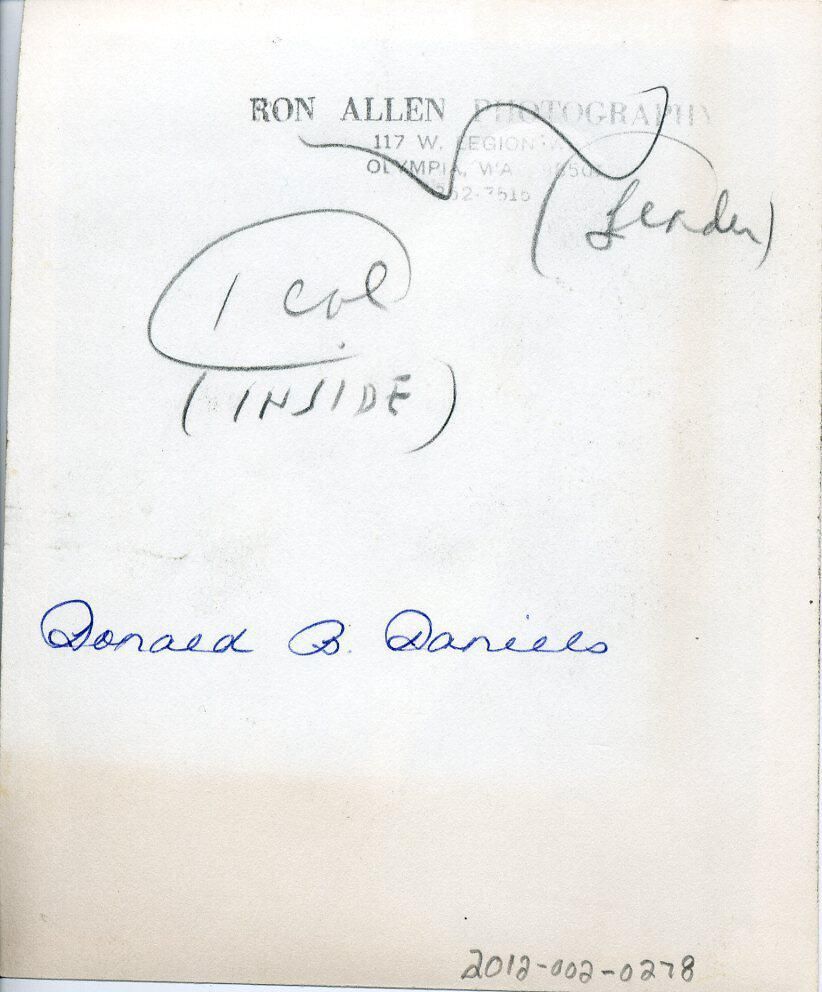 RON ALLEN PHOTOGRAPHY
117 W. LEGION
OLYMPIA, WA
(Leader)
1 col
(INSIDE)
Donald B. Daniels
2012-002-0278